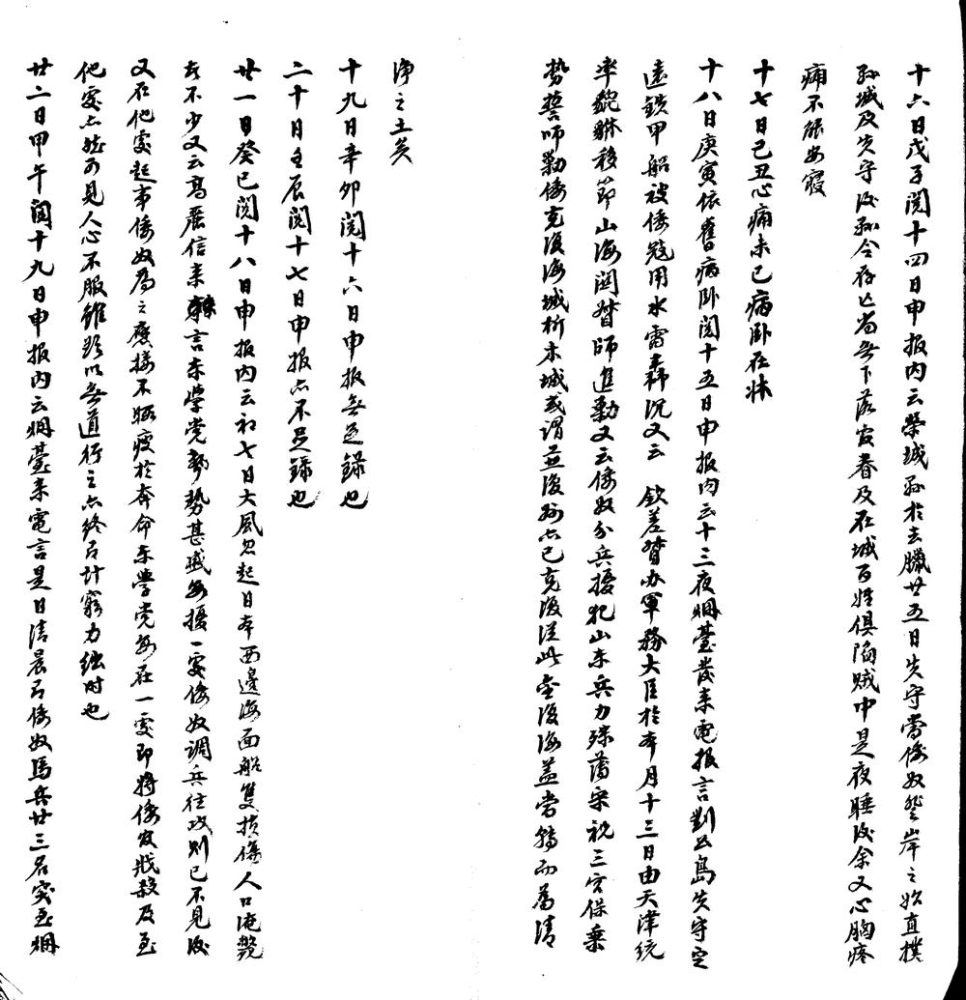 十六日戊子閱十四日申报内云榮城縣於去臘廿五日失守當倭奴登岸之始直撲
縣城及失守後縣令存亡尚無下落官眷及在城百姓俱陷賊中是夜睡後余又心胸疼
痛不能安寢
十七日己丑心痛未已病卧在牀
十八日庚寅依舊病卧閱十五日申报内云十三夜烟臺發来電报言劉公島失守定
遠鉄甲船被倭寇用水雷轟沉又云 欽差督办軍務大臣於本月十三日由天津統
率貔貅移節山海関督師進勦又云倭奴分兵擾犯山东兵力殊薄宋祝三宫保乘
勢誓師勦倭克復海城析木城或谓蓝復縣亦已克復從此金復海蓋當轉而為清
净之土矣
十九日辛卯閱十六日申报無足錄也
二十日壬辰閱十七日申报亦不足錄也
廿一日癸巳閱十八日申报内云初七日大風忽起日本西邊海面船隻損傷人口淹斃
去不少又云高麗信来言东学党勢甚盛每擾一處倭奴調兵往攻則已不見後
又在他處起事倭奴為之應接不暇疲於奔命东學党每在一處即將倭官戕殺及至
他處亦然可見人心不服雖欲以無道行之亦終有計窮力絀时也
廿二日甲午閱十九日申报内云烟臺来電言是日清晨有倭奴馬兵廿三名突至烟